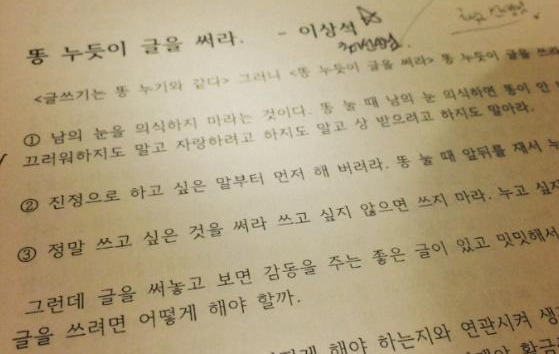 똥 누듯이 글을 써라. - 이상석
<글쓰기는 똥 누기와 같다> 그러니 <똥 누듯이 글을 써라> 똥 누듯이 글을
① 남의 눈을 의식하지 마라는 것이다. 똥 눌 때 남의 눈 의식하면 똥이 안
끄러워하지도 말고 자랑하려고 하지도 말고 상 받으려고 하지도 말아라.
② 진정으로 하고 싶은 말부터 먼저 해 버려라. 똥 눌 때 앞뒤를 재서
③ 정말 쓰고 싶은 것을 써라 쓰고 싶지 않으면 쓰지 마라. 누고
그런데 글을 써놓고 보면 감동을 주는 좋은 글이 있고 밋밋해서
글을 쓰려면 어떻게 해야 할까.
해야 하는지와 연관시켜